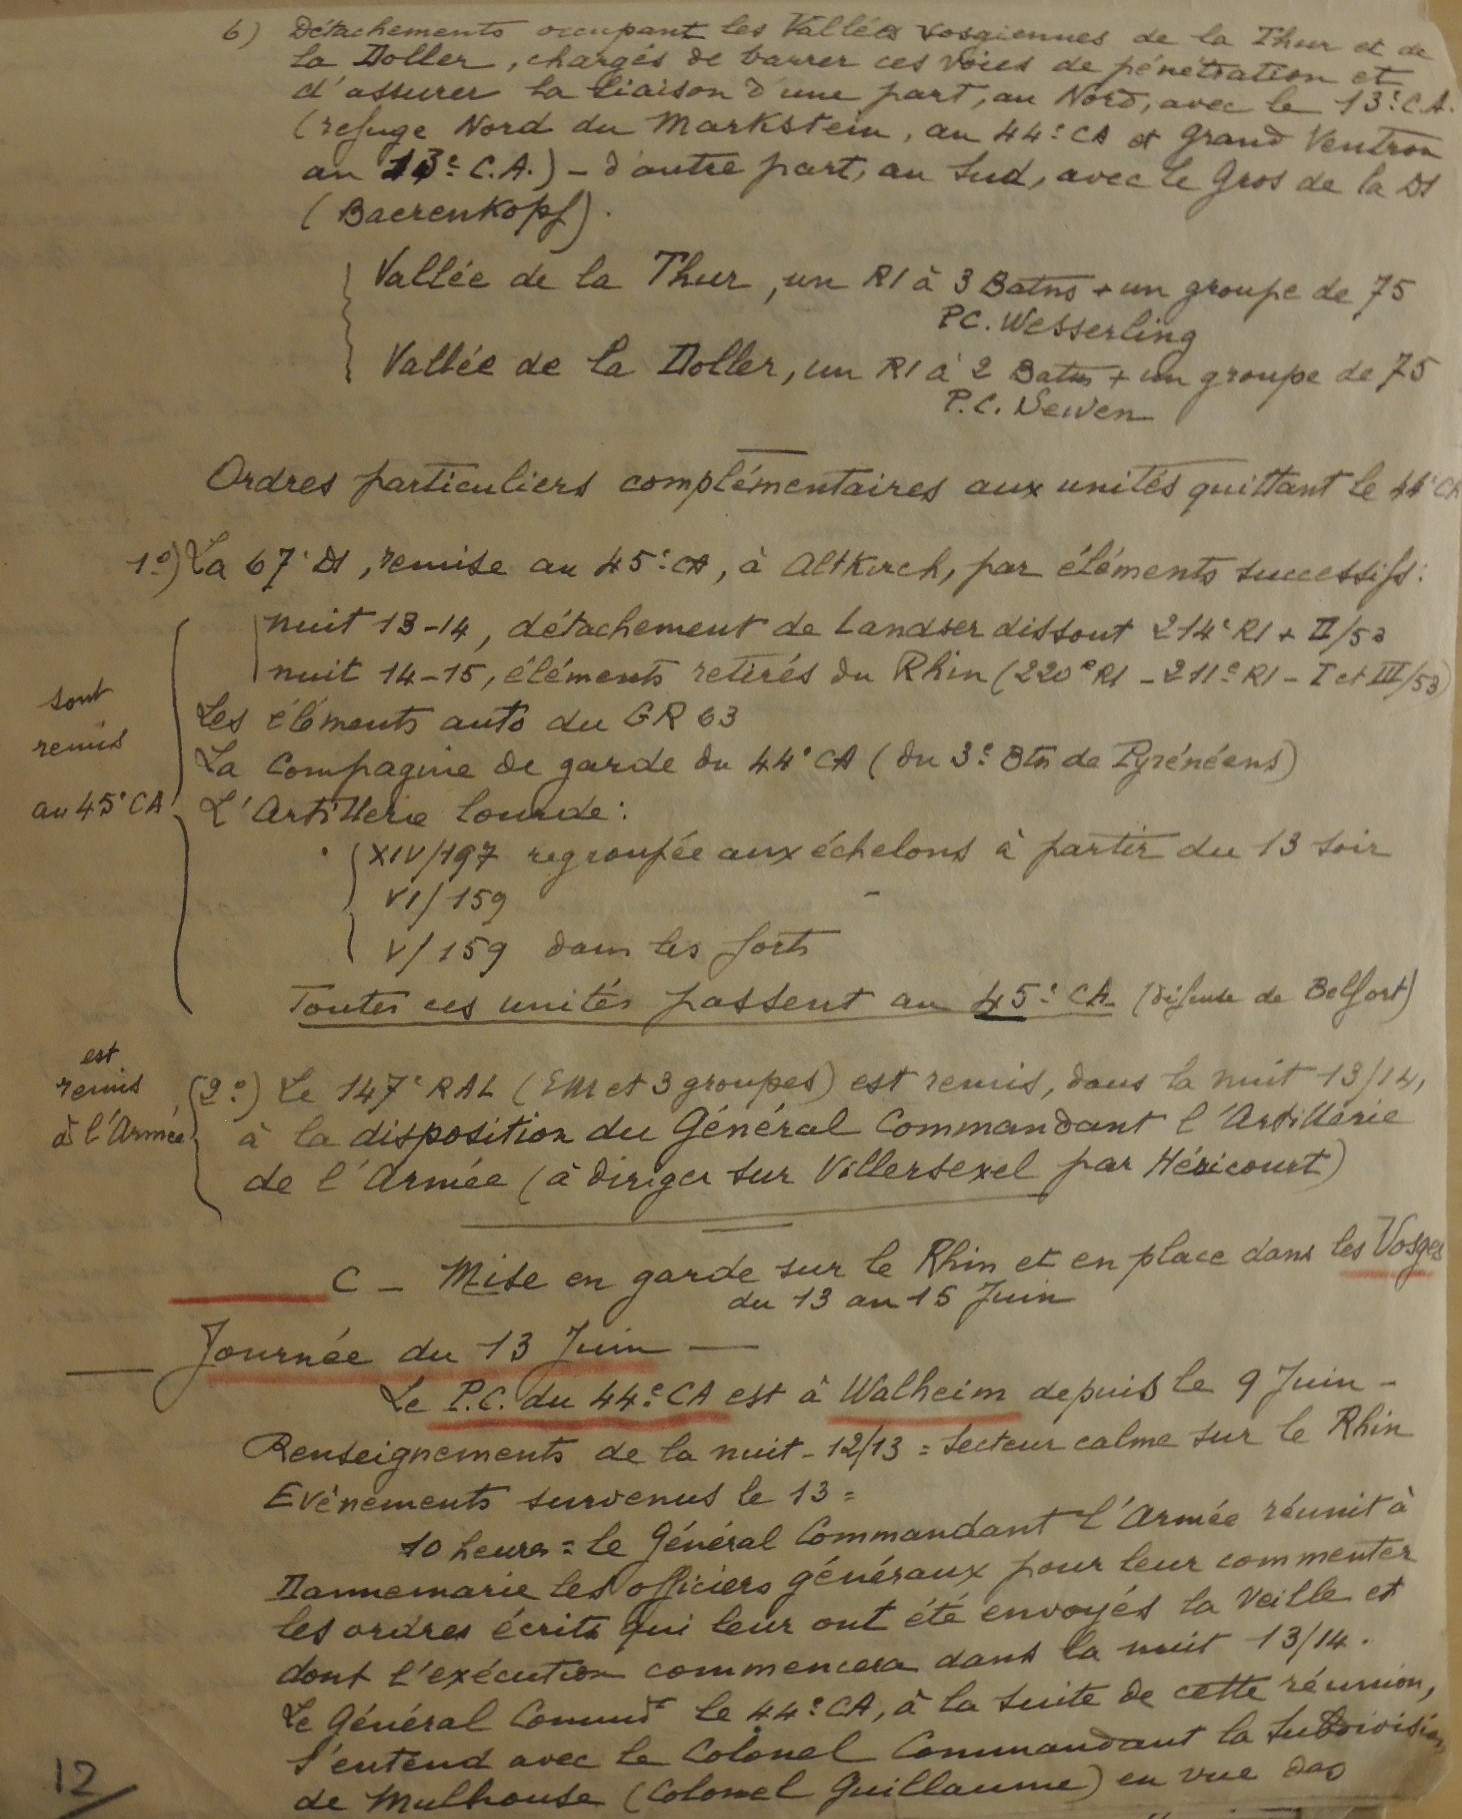 6) Détachements occupant les Vallées vosgiennes de la Thur et de
la Doller, chargés de barrer ces voies de pénétration et
d'assurer la liaison d'une part, au Nord, avec le 13e C.A.
(refuge Nord du Markstein, au 44e CA et Grand Ventron
au 13e C.A.) - d'autre part, au Sud, avec le gros de la DI
(Baerenkopf).
Vallée de la Thur, un RI à 3 Batns + un groupe de 75
PC. Wesserling
Vallée de la Doller, un RI à 2 Batns + un groupe de 75
P.C. Sewen
Ordres particuliers complémentaires aux unités quittant le 44e CA
1°) La 67e DI, remise au 45e CA, à Altkirch, par éléments successifs:
nuit 13-14, détachement de Landser dissout 214e RI + II/53
nuit 14-15, éléments retirés du Rhin (220e RI - 211e RI - I et III/53)
sont
remis
au 45e CA
Les éléments auto du GR 63
La Compagnie de garde du 44e CA (du 3e Btn de Pyrénéens)
L'Artillerie lourde:
XIV/197 regroupée aux échelons à partir du 13 soir
VI/159 -
V/159 dans les forts
Toutes ces unités passent au 45e CA (défense de Belfort)
est
remis
à l'Armée
(2°) Le 147e RAL (EM et 3 groupes) est remis, dans la nuit 13/14,
à la disposition du Général Commandant l'Artillerie
de l'Armée (à diriger sur Villersexel par Héricourt)
C - Mise en garde sur le Rhin et en place dans les Vosges
du 13 au 15 Juin
Journée du 13 Juin
Le P.C. du 44e CA est à Walheim depuis le 9 Juin -
Renseignements de la nuit - 12/13 = Secteur calme sur le Rhin
Evénements survenus le 13 =
10 heures = le Général Commandant l'Armée réunit à
Dannemarie les officiers généraux pour leur commenter
les ordres écrits qui leur ont été envoyés la veille et
dont l'exécution commencera dans la nuit 13/14.
Le Général Commdt le 44e CA, à la suite de cette réunion,
s'entend avec le Colonel Commandant la Subdivision
de Mulhouse (Colonel Guillaume) en vue des
12